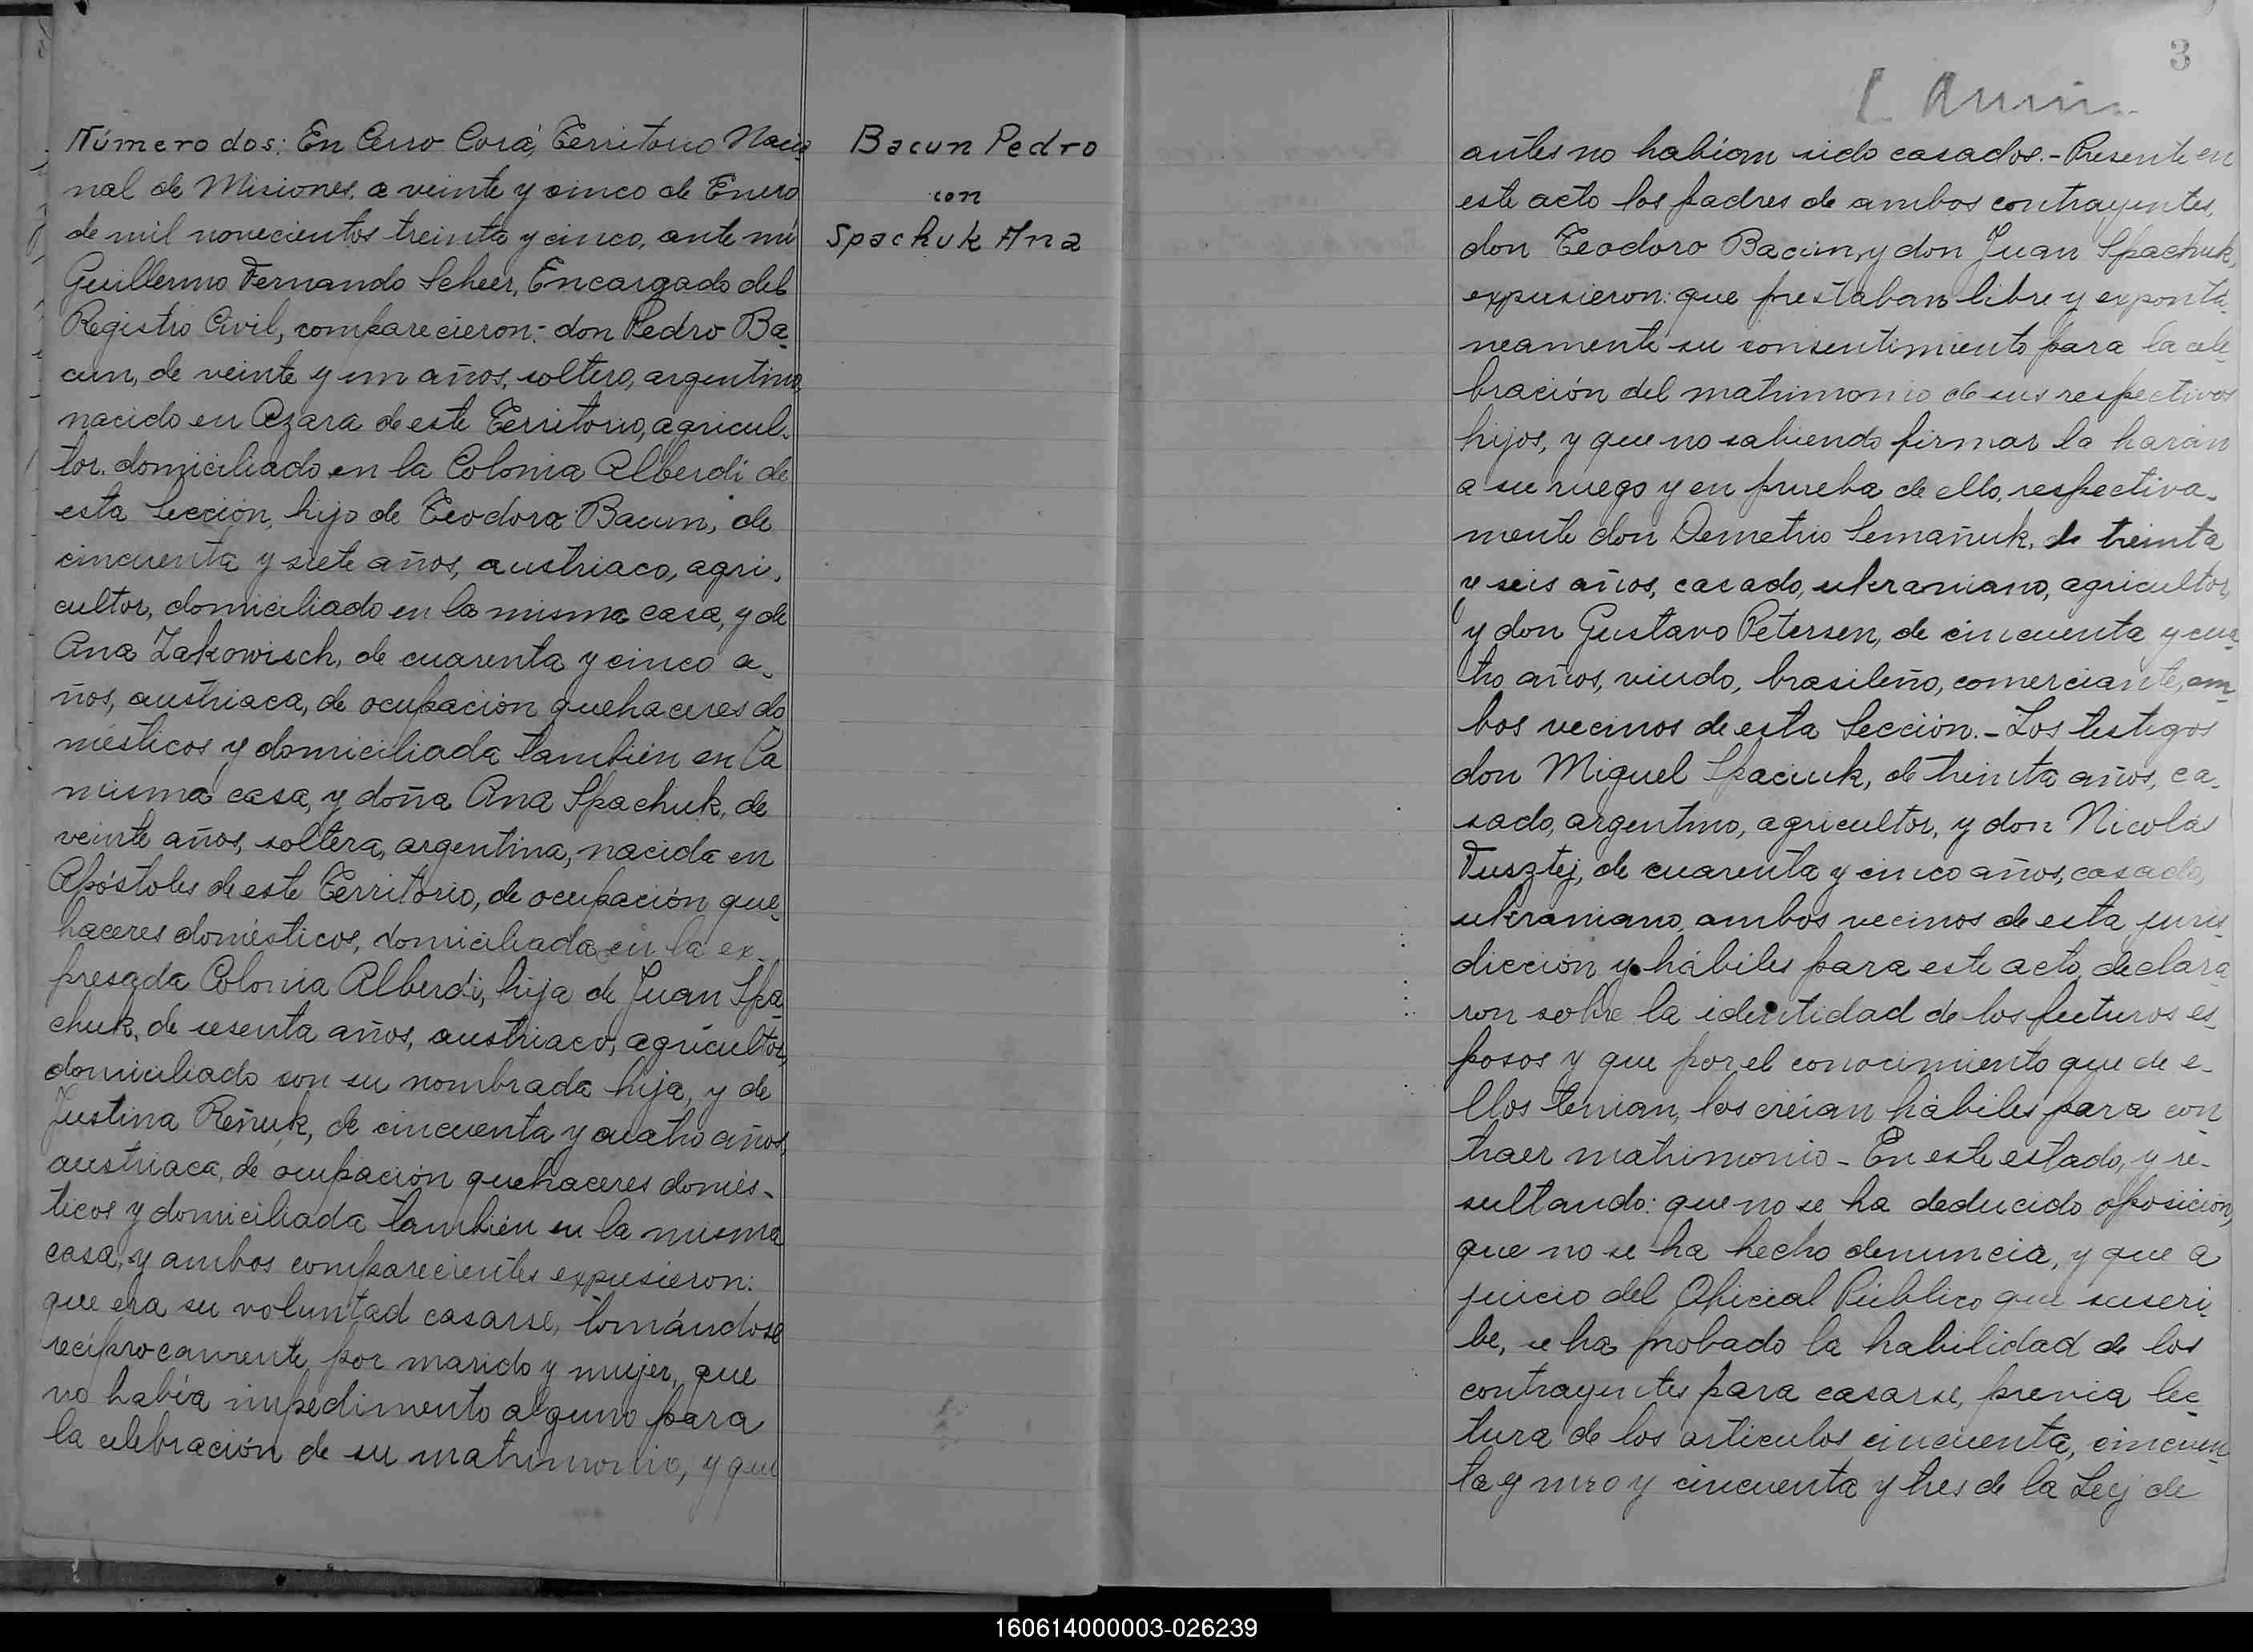 Número dos: En Cerro Corá, Territorio Nacio
nal de Misiones, a veinte y cinco de Enero
de mil novecientos treinta y cinco, ante mi
Guillermo Fernando Scheer, Encargado del
Registro Civil, comparecieron:- don Pedro Ba
cun, de veinte y un años, soltero, argentino,
nacido en Azara de este Territorio, agricul-
tor, domiciliado en la Colonia Alberdi de
esta Sección, hijo de Teodoro Bacun, de
cincuenta y siete años, austriaco, agri-
cultor, domiciliado en la misma casa, y de
Ana Zakowisch, de cuarenta y cinco a-
ños, austriaca, de ocupación quehaceres do
mésticos y domiciliada también en la
misma casa, y doña Ana Spachuk, de
veinte años, soltera, argentina, nacida en
Apóstoles de este Territorio, de ocupación que-
haceres domésticos, domiciliada en la ex-
presada Colonia Alberdi, hija de Juan Spa
chuk, de sesenta años, austriaco, agricultor,
domiciliado con su nombrada hija, y de
Justina Reñuk, de cincuenta y cuatro años,
austriaca, de ocupación quehaceres domés-
ticos y domiciliada también en la misma
casa, y ambos comparecientes expusieron:
que era su voluntad casarse, tomándose
recíprocamente por marido y mujer, que
no había impedimento alguno para
la celebración de su matrimonio, y que
Bacun Pedro
con
Spachuk Ana
3
antes no habían sido casados.- Presente en
este acto los padres de ambos contrayentes,
don Teodoro Bacun, y don Juan Spachuk,
expusieron: que prestaban libre y espontá
neamente su consentimiento para la cele
bración del matrimonio de sus respectivos
hijos, y que no sabiendo firmar lo harán
a su ruego y en prueba de ello, respectiva-
mente don Demetrio Semañuk, de treinta
y seis años, casado, ukraniano, agricultor,
y don Gustavo Petersen, de cincuenta y cua
tro años, viudo, brasileño, comerciante, am
bos vecinos de esta Sección.- Los testigos
don Miguel Spaciuk, de treinta años, ca-
sado, argentino, agricultor, y don Nicolás
Tusztej, de cuarenta y cinco años, casado,
ukraniano, ambos vecinos de esta juris
dicción y hábiles para este acto, declara
ron sobre la identidad de los futuros es
posos y que por el conocimiento que de e-
llos tenían, los creían hábiles para con
traer matrimonio - En este estado, y re-
sultando: que no se ha deducido oposición,
que no se ha hecho denuncia, y que a
juicio del Oficial Público que suscri
be, se ha probado la habilidad de los
contrayentes para casarse, previa lec
tura de los artículos cincuenta, cincuen
ta y uno y cincuenta y tres de la Ley de
160614000003-026239